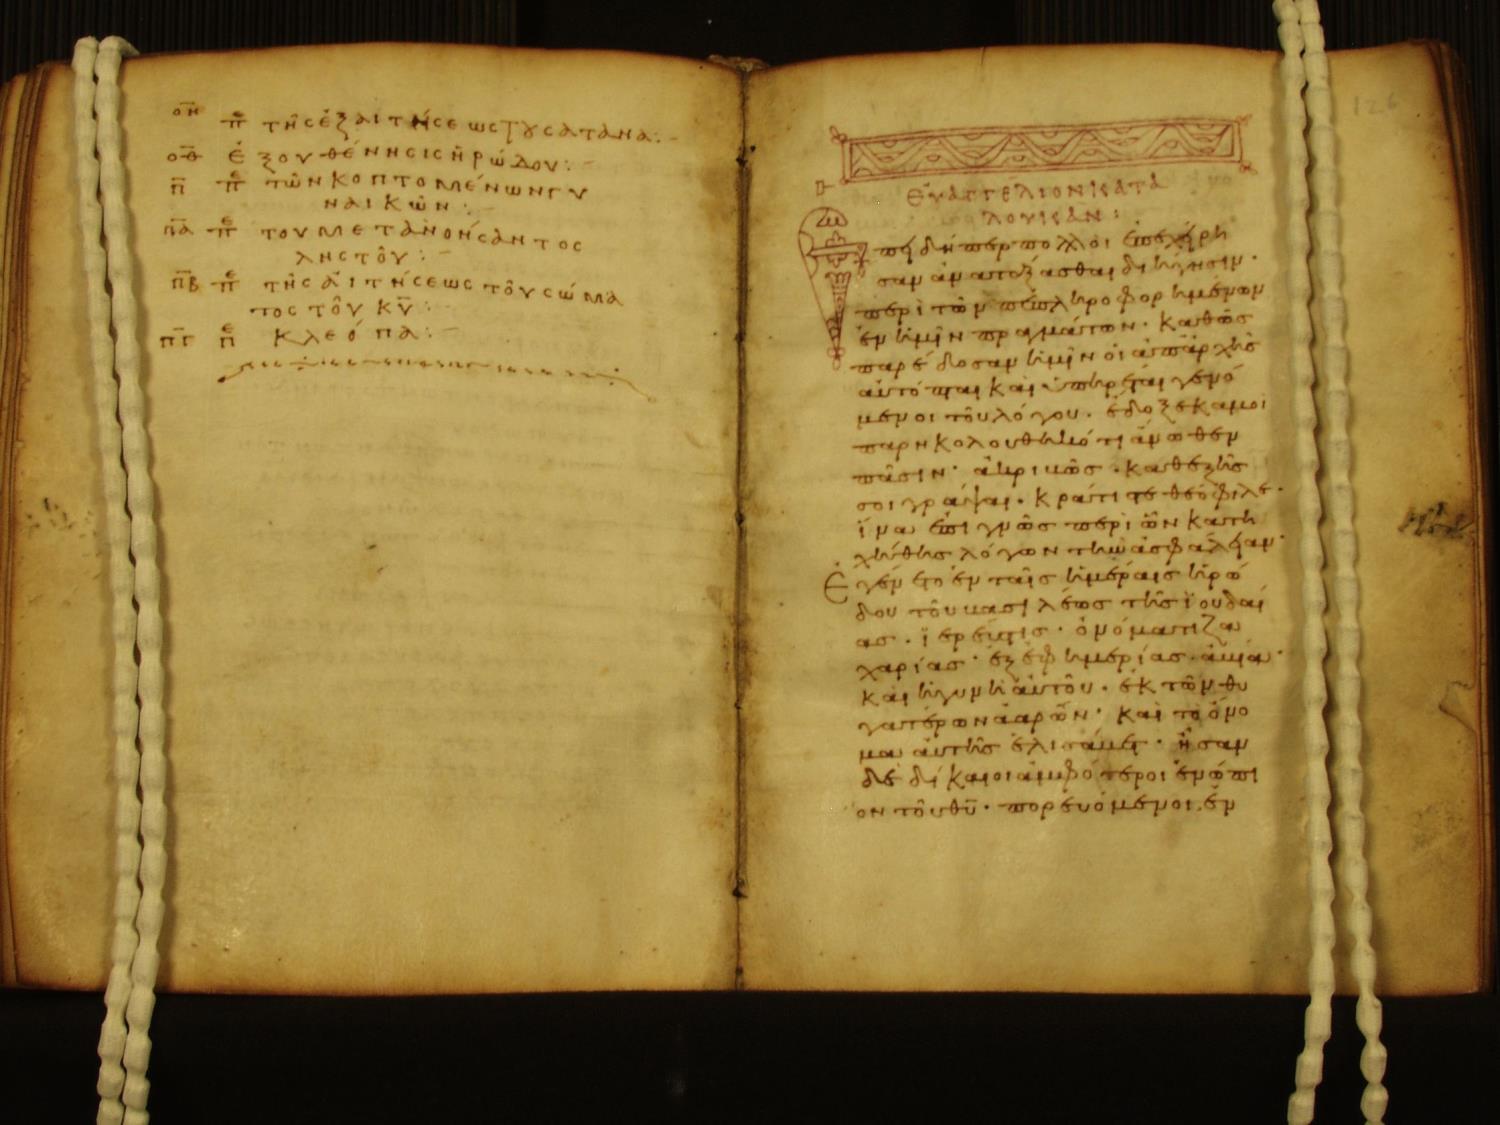 οη περ της εξαιτησεως του σατανα:
οθ εξουθενησις ηρωδου:
π περ των κοπτομενων γυ
ναικων:
πα περ του μετανοησαντος
ληστου:
πβ περ της αιτησεως του σωμα
τος του κυ:
πγ περ κλεοπα:
126
ευαγγελιον κατα
λουκαν:
Επειδηπερ πολλοι επεχειρη
σαν αναταξασθαι διηγησιν·
περι των πεπληροφορημενων
εν ημιν πραγματων· καθως
παρεδοσαν ημιν οι απ αρχης
αυτοπται και υπηρεται γενο
μενοι του λογου. εδοξε καμοι
παρηκολουθηκοτι ανωθεν
πασιν· ακριβως· καθεξης
σοι γραψαι· κρατιστε θεοφιλε·
ινα επιγνως περι ων κατη
χηθης λογων την ασφαλειαν·
Εγενετο εν ταις ημεραις ηρω
δου του βασιλεως της ιουδαι
ας· ιερευς τις· ονοματι ζα
χαριας· εξ εφημεριας· αβια·
και η γυνη αυτου· εκ των θυ
γατερων ααρων· και το ονο
μα αυτης ελισαβετ· ησαν
δε δικαιοι αμφοτεροι ενωπι
ον του θυ· πορευομενοι εν